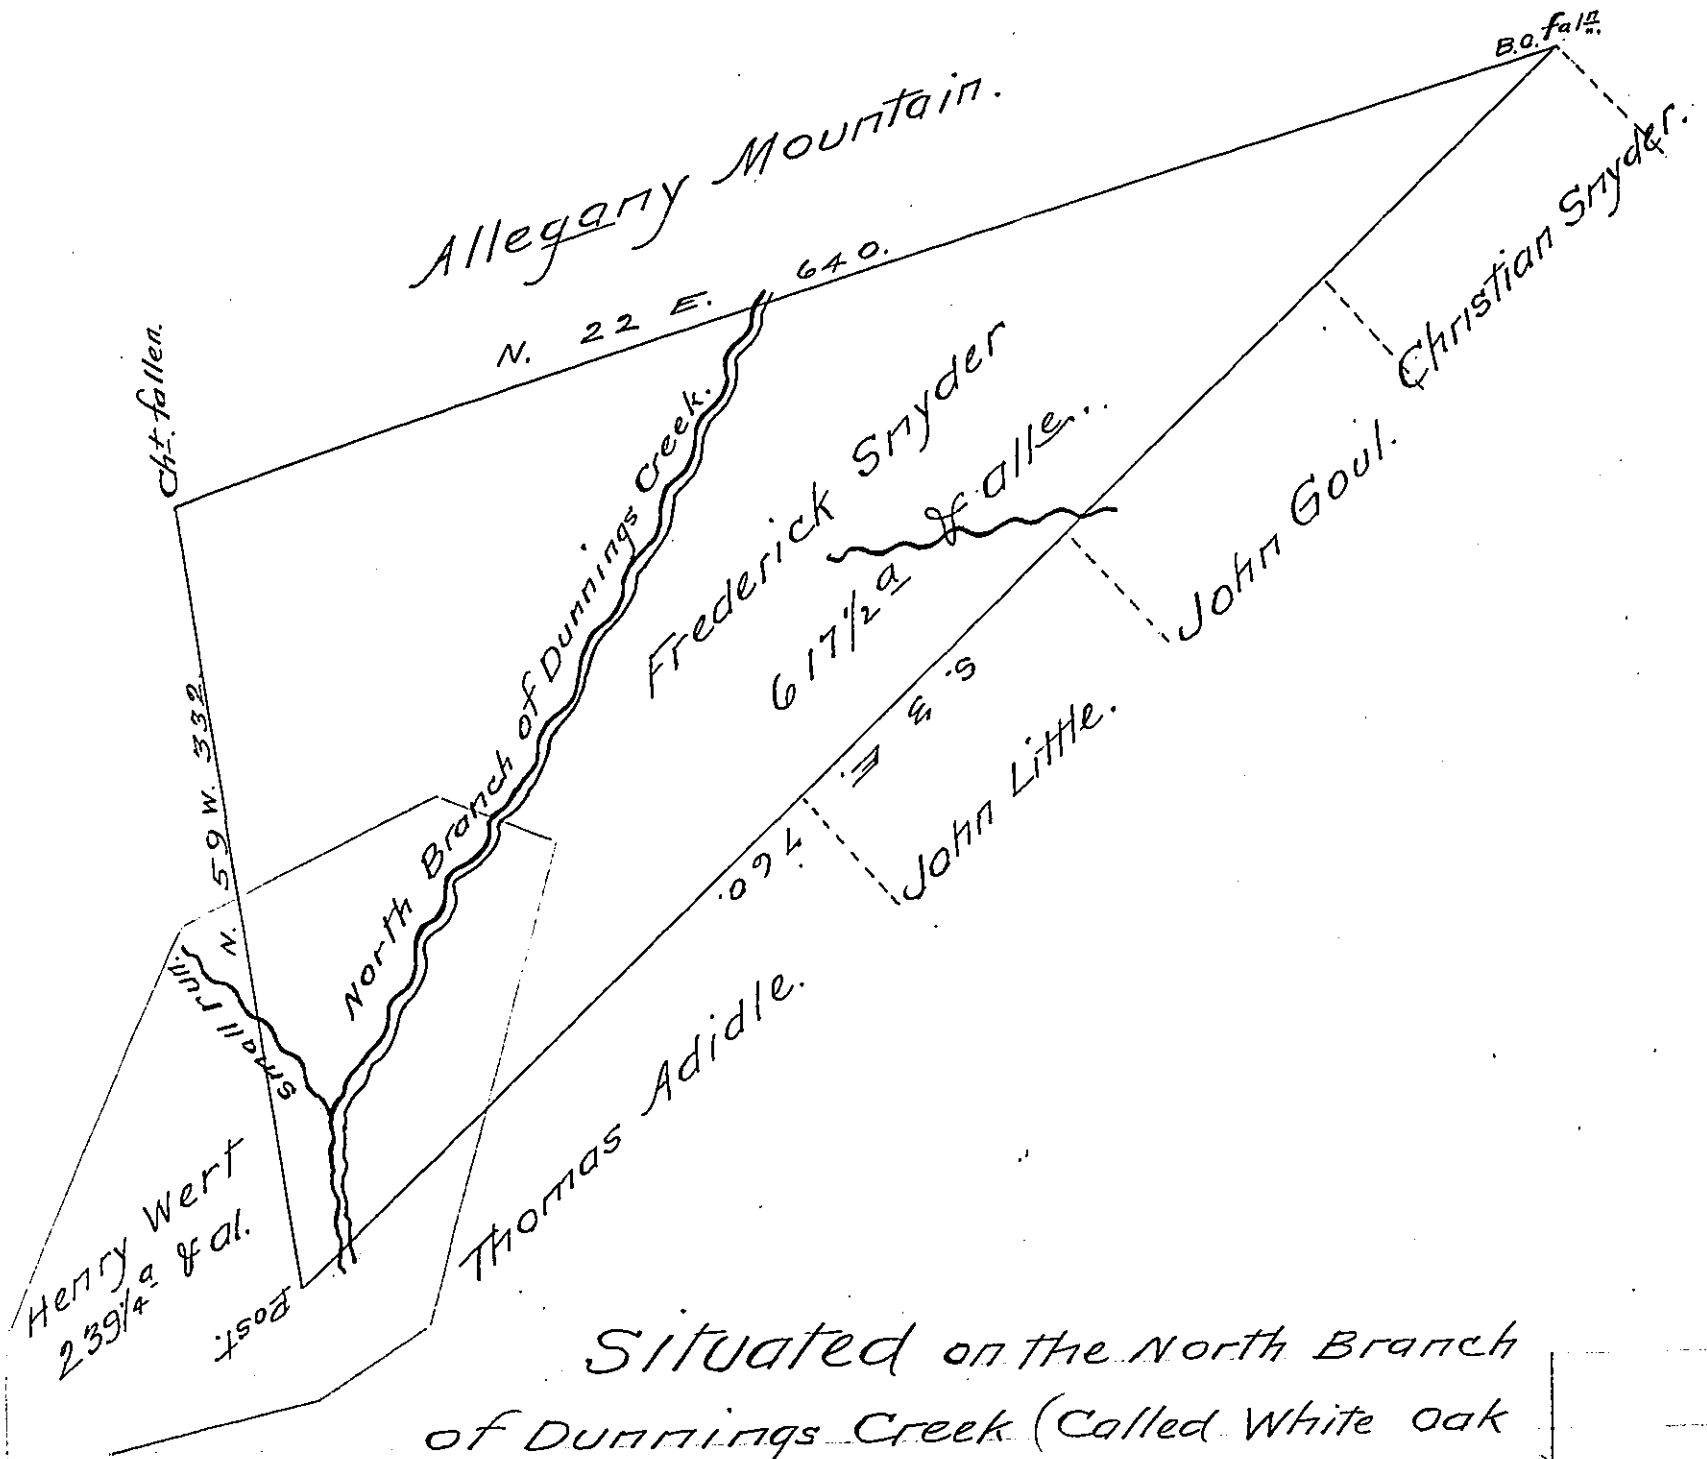 B.O. faln.
Allegany Mountain.
N. 22 E. 640.
Cht. fallen.
Christian Snyder.
Frederick Snyder
617 1/2 a & alle...
North Branch of Dunnings Creek.
John Goul.
S. 3 E. 760.
John Little.
N. 59 W. 332.
Small run.
Thomas Adidle.
Henry Wert
239 1/4 a & al.
Post.
Situated on the North Branch
of Dunnings Creek (Called White Oak